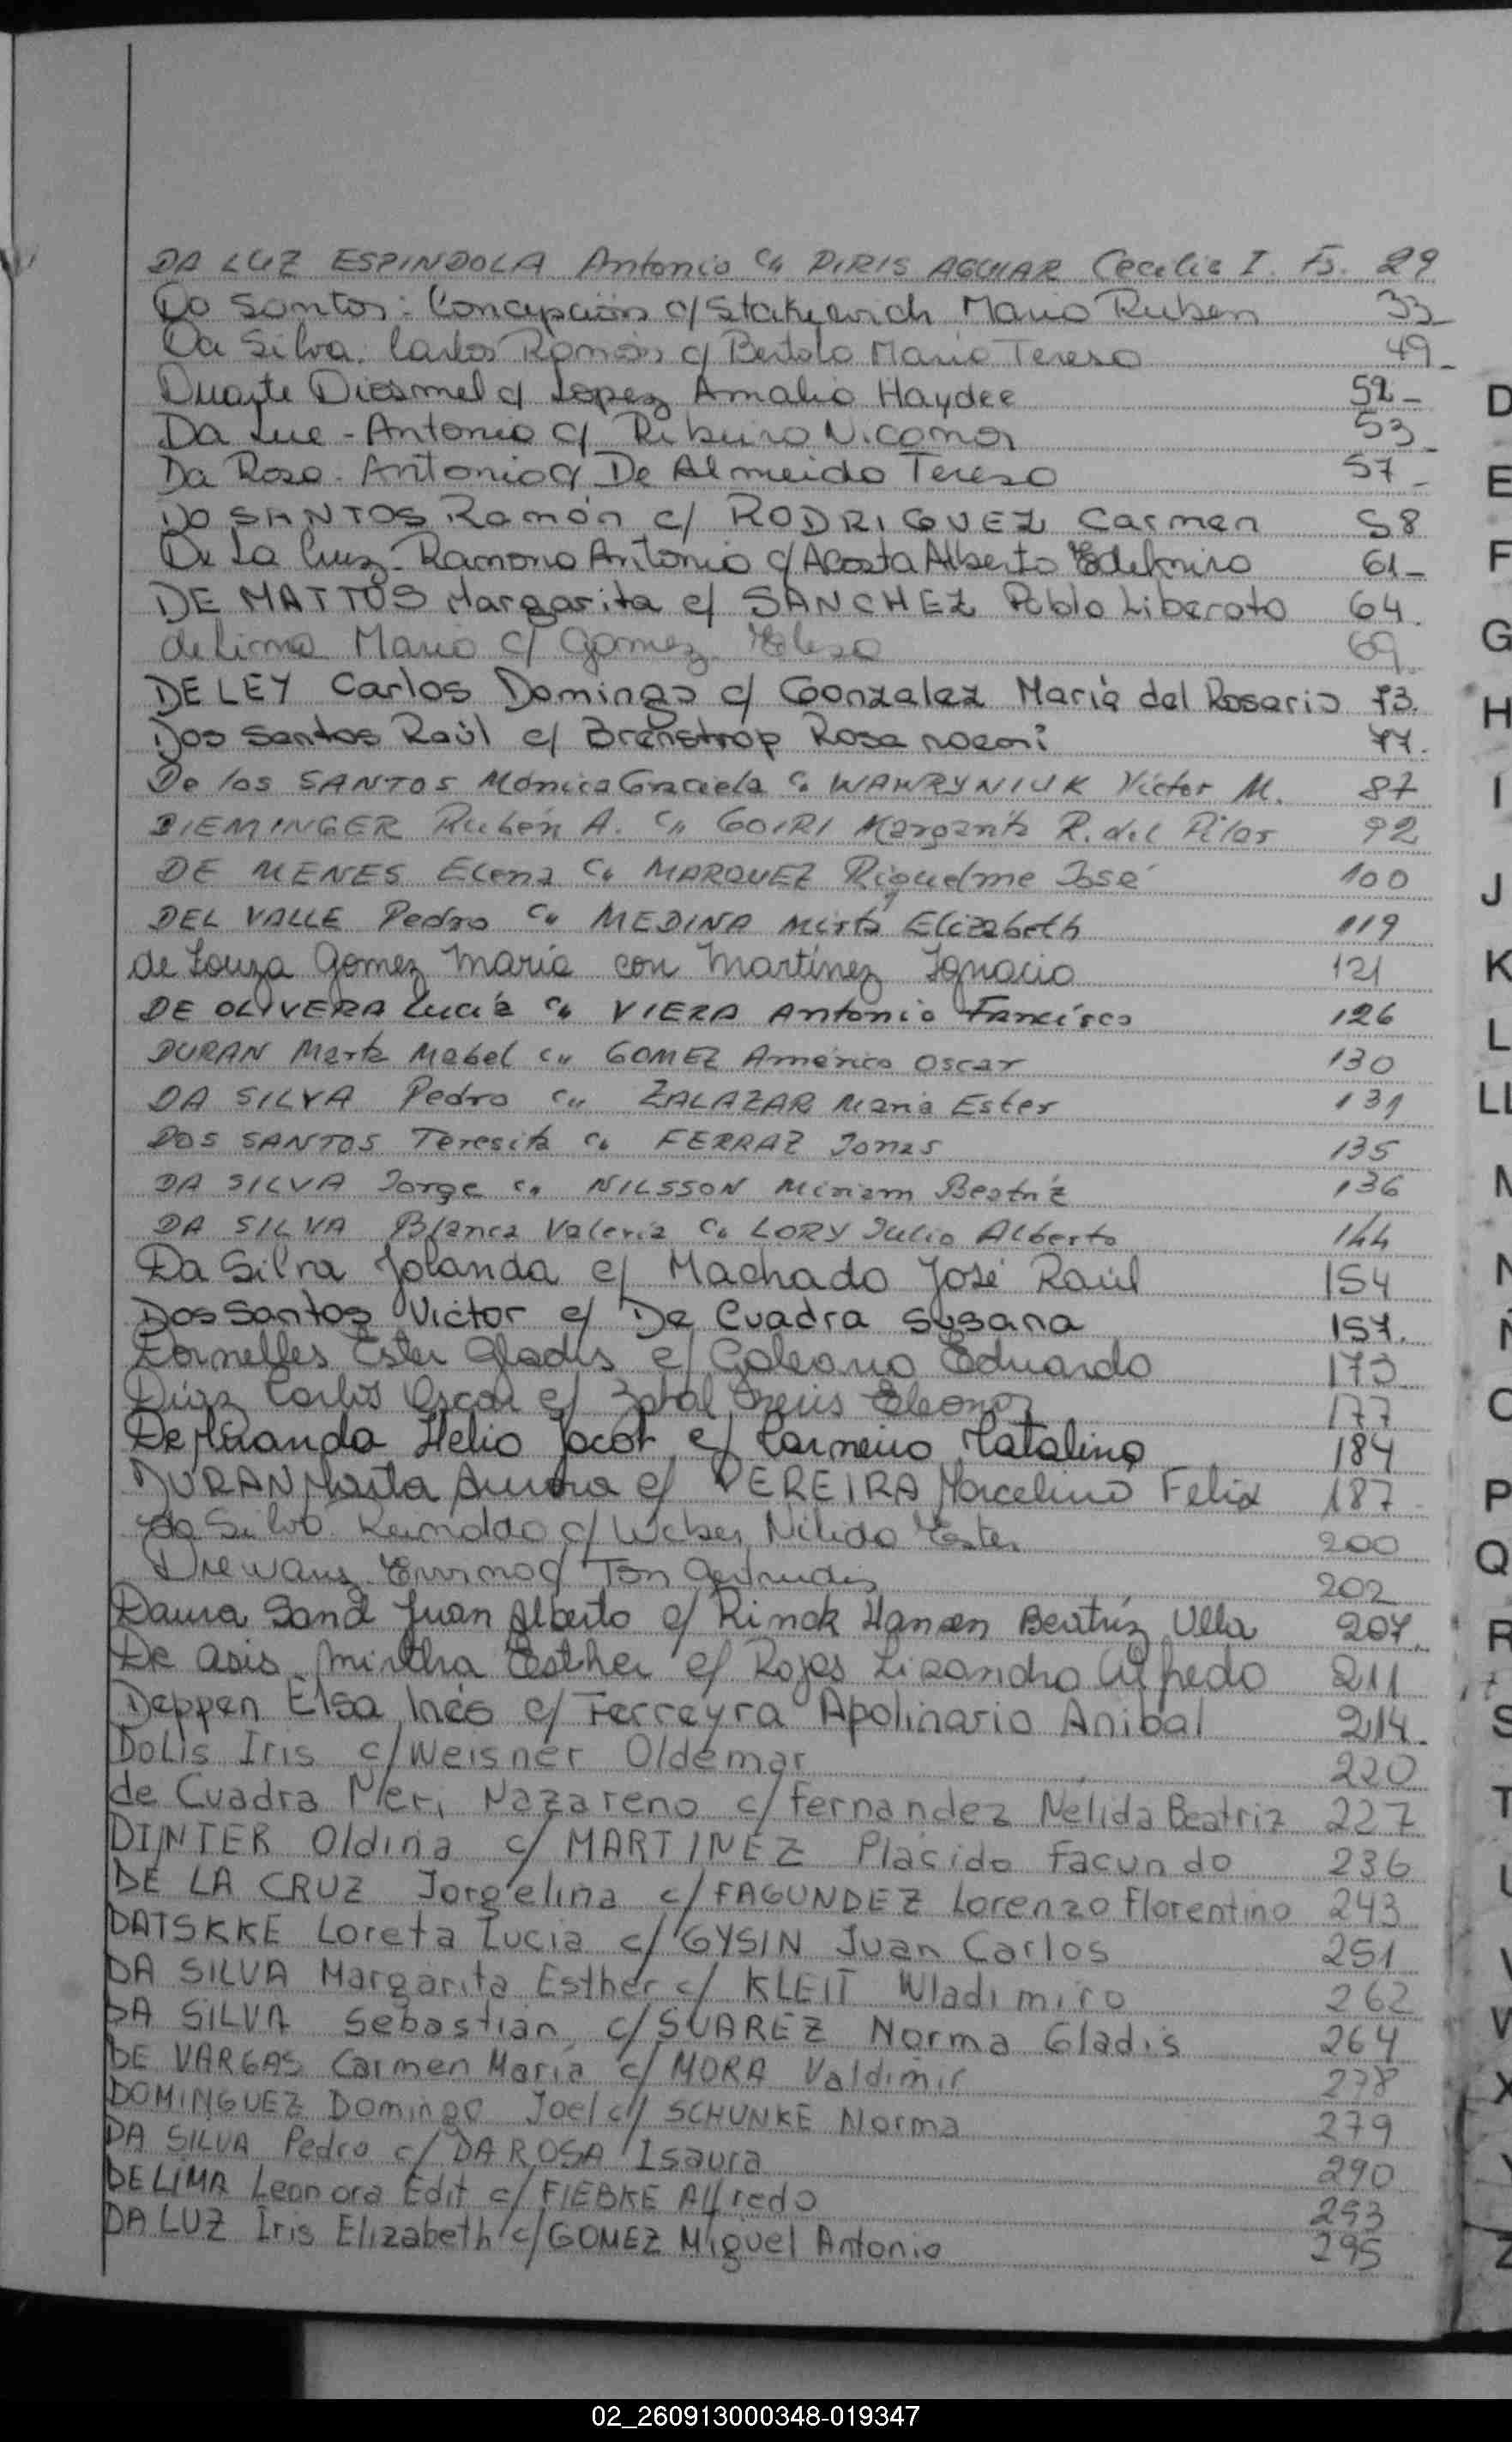 DA LUZ ESPINDOLA Antonio c/ PIRIS AGUIAR Cecilia I. Fs. 29
Do Santos: Concepción c/ Stakievich Mario Ruben 33-
Da Silva. Carlos Ramón c/ Bertolo Maria Teresa 49-
Duarte Diosmel c/ Lopez Amalia Haydee 52-
Da Luz - Antonio c/ Ribeiro Nicomor 53-
Da Rosa. Antonio c/ De Almeida Teresa 57-
DO SANTOS Ramón c/ RODRIGUEZ Carmen 58
De La Cruz - Ramona Antonia c/ Acosta Alberto Edelmiro 61-
DE MATTOS Margarita c/ SANCHEZ Pablo Liberato 64.
de Lima Mario c/ Gomez Elesa 69.
DE LEY Carlos Domingo c/ Gonzalez María del Rosario 73.
Dos Santos Raúl c/ Brenstrop Rosa noemi 77.
De los SANTOS Mónica Graciela c/ WAWRYNIUK Víctor M. 87
DIEMINGER Rubén A. c/ GOIRI Margarita R. del Pilar 92
DE MENES Elena c/ MARQUEZ Riquelme José 100
DEL VALLE Pedro c/ MEDINA Mirta Elizabeth 119
de Souza Gomez María con Martínez Ignacio 121
DE OLIVERA Lucía c/ VIERA Antonio Francisco 126
DURAN Marta Mabel c/ GOMEZ Américo Oscar 130
DA SILVA Pedro c/ ZALAZAR Maria Ester 131
DOS SANTOS Teresita c/ FERRAZ Jonas 135
DA SILVA Jorge c/ NILSSON Miriam Beatriz 136
DA SILVA Blanca Valeria c/ LORY Julio Alberto 144
Da Silva Jolanda c/ Machado José Raúl 154
Dos Santos Victor c/ De Cuadra Susana 157.
Dornelles Ester Gladis c/ Galeano Eduardo 173
Díaz Carlos Oscar c/ Zabal Eleonor 177
De Miranda Helio Jacot c/ Carneiro Natalina 184
DURAN Marta Aurora c/ PEREIRA Marcelino Felix 187
da Silva Reinoldo c/ Weber Nélida Ester 200
Drewanz Ervino c/ Ton Gertrudis 202
Daura Sand Juan Alberto c/ Rinck Hansen Beatríz Ulla 207.
De Asis Mirtha Esther c/ Rojas Lizandro Alfredo 211
Deppen Elsa Inés c/ Ferreyra Apolinario Anibal 214.
Dolis Iris c/ Weisner Oldemar 220
de Cuadra Neri Nazareno c/ fernandez Nélida Beatriz 227
DINTER Oldina c/ MARTINEZ Placido facundo 236
DE LA CRUZ Jorgelina c/ FAGUNDEZ Lorenzo Florentino 243
DATSKKE Loreta Lucia c/ GYSIN Juan Carlos 251
DA SILVA Margarita Esther c/ KLEIT Wladimiro 262
DA SILVA Sebastian c/ SUAREZ Norma Gladis 264
DE VARGAS Carmen María c/ MORA Valdimir 278
DOMINGUEZ Domingo Joel c/ SCHUNKE Norma 279
DA SILVA Pedro c/ DA ROSA Isaura 290
DE LIMA Leonora Edit c/ FIEBKE Alfredo 293
DA LUZ Iris Elizabeth c/ GOMEZ Miguel Antonio 295
D
E
F
G
H
I
J
K
L
LL
M
N
Ñ
O
P
Q
R
S
T
U
V
W
X
Y
Z
02_260913000348-019347